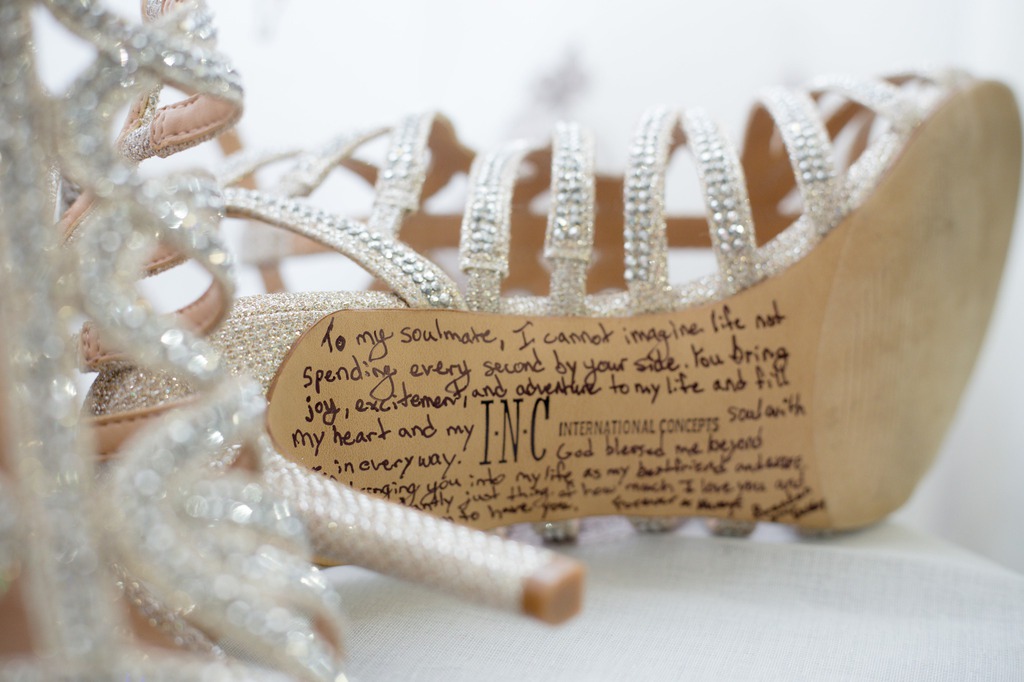 To my soulmate, I cannot imagine life not
spending every second by your side. You bring
joy, excitement, and adventure to my life and fill
my heart and my I·N·C INTERNATIONAL CONCEPTS soul with
in every way. God blessed me beyond
bringing you into my life as my bestfriend and
just think of how much I love you and
to have you. Forever & Always